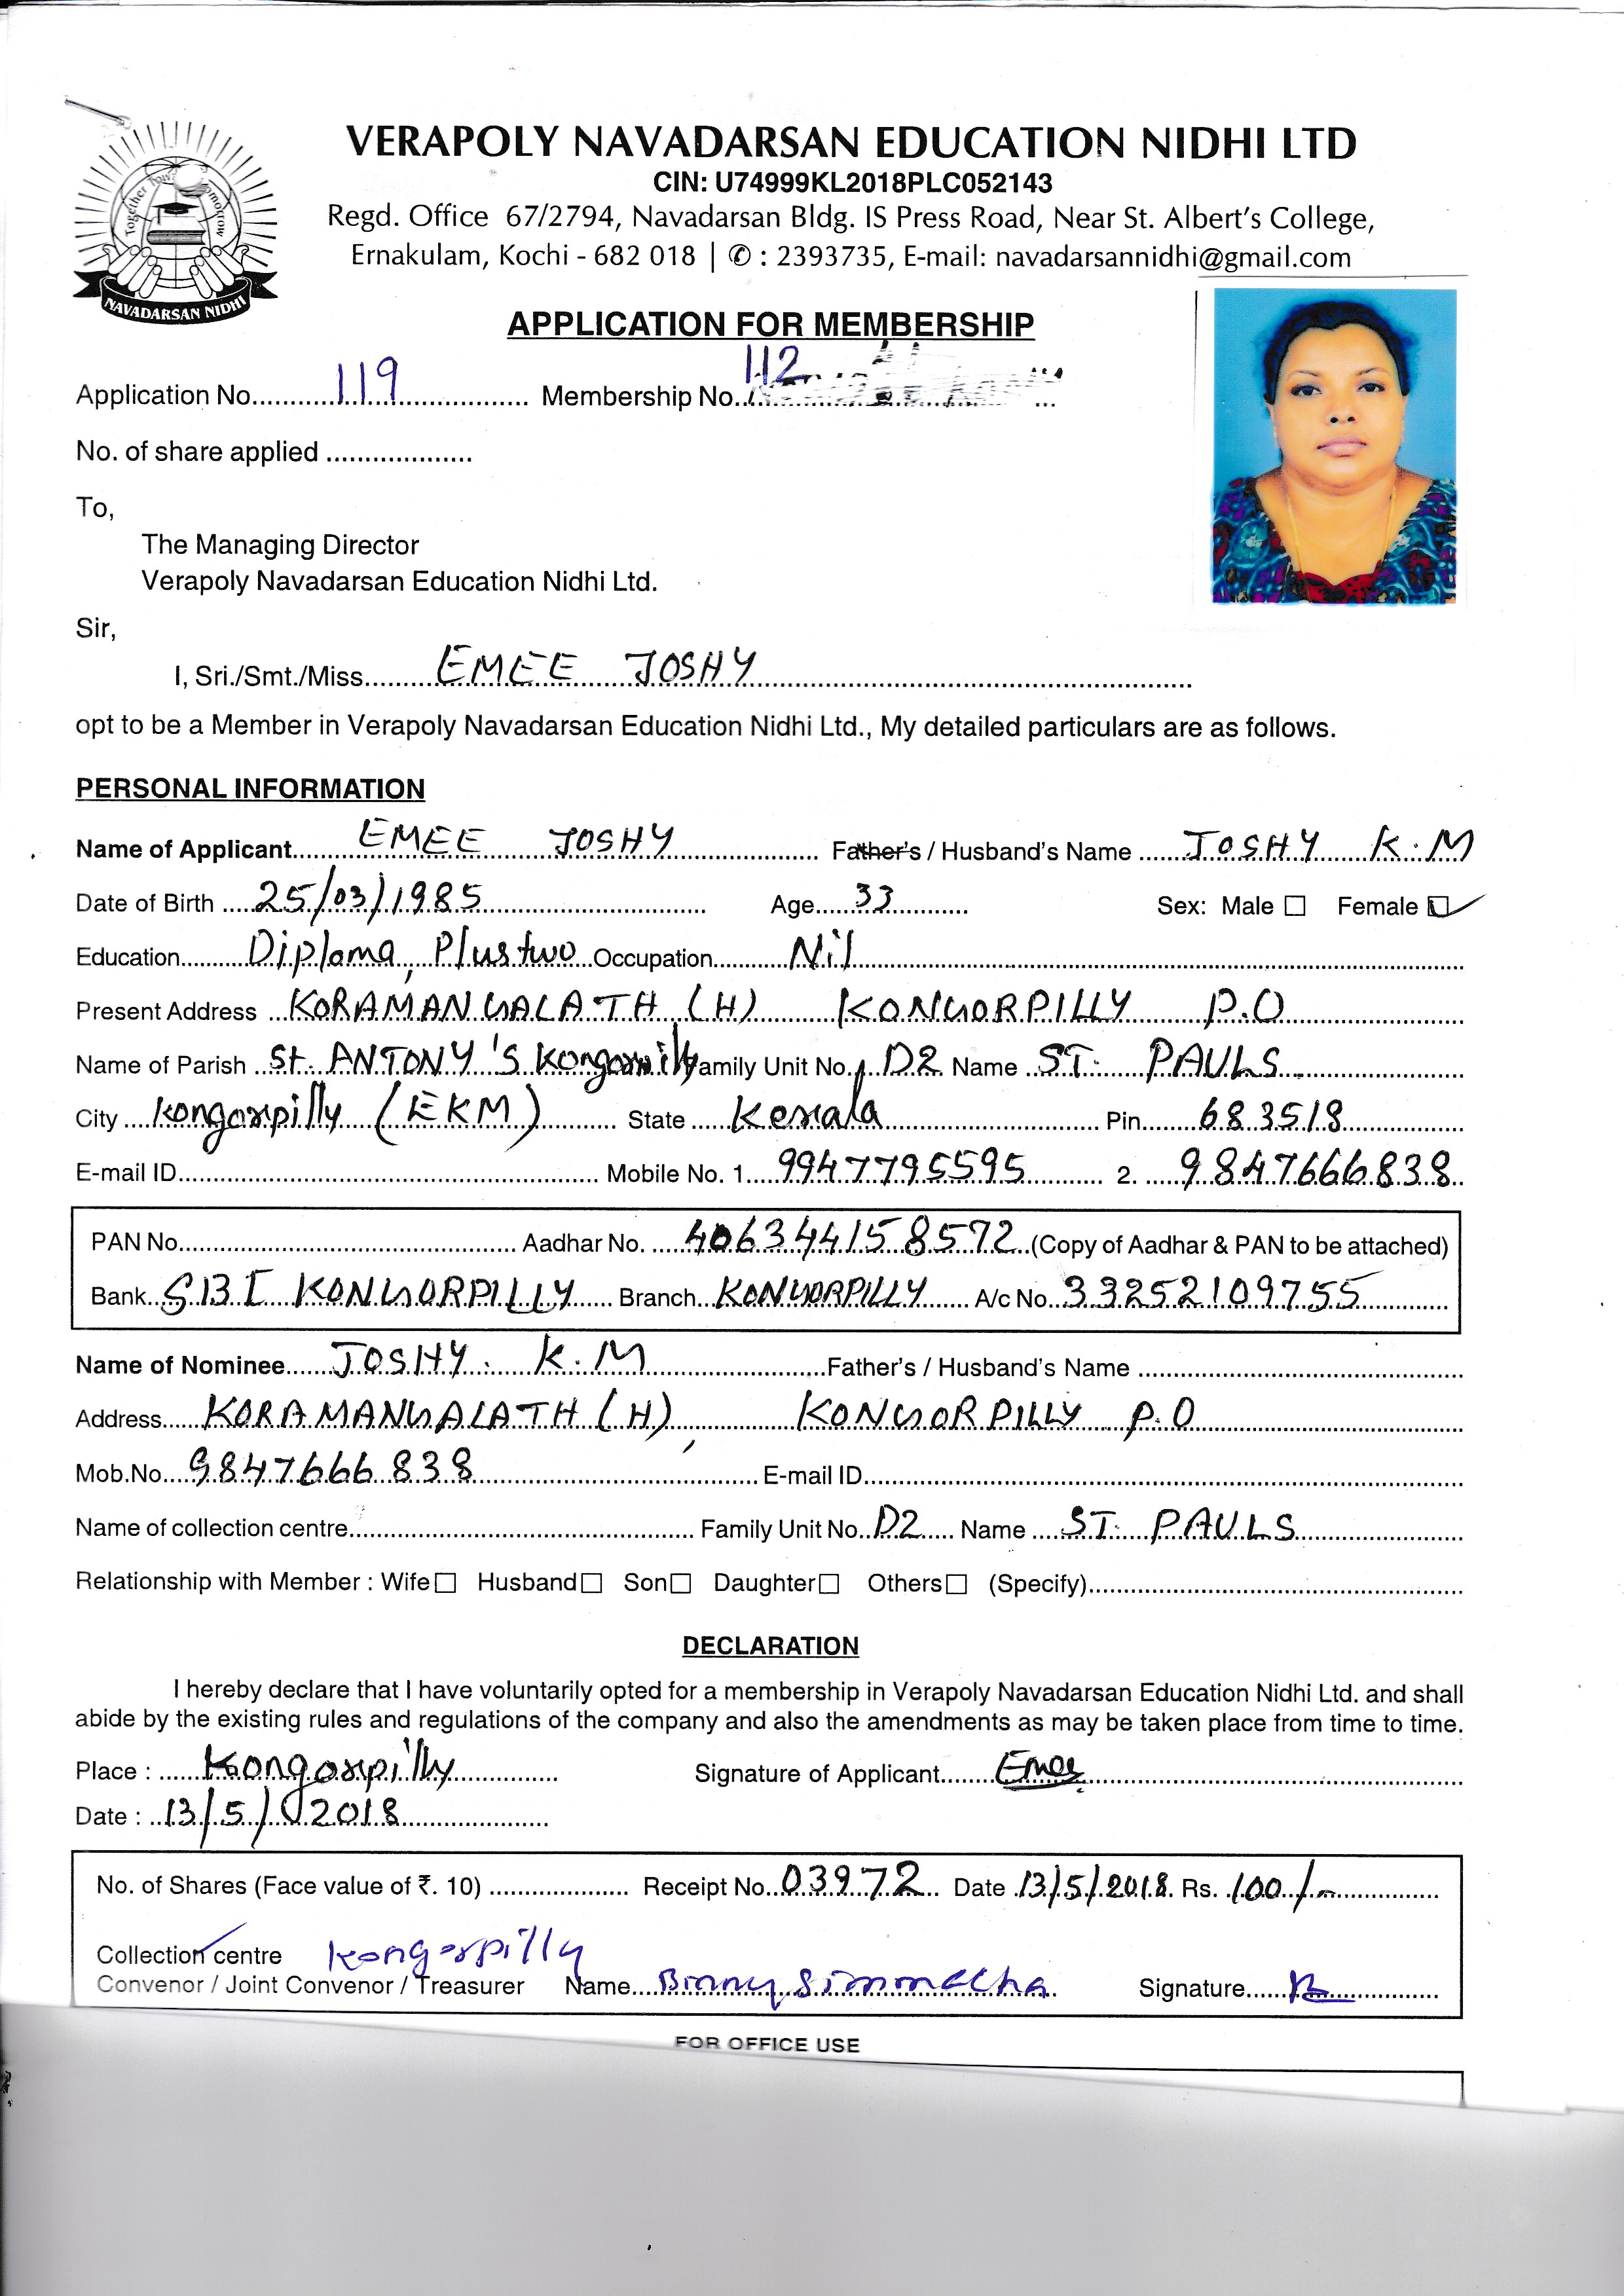 VERAPOLY NAVADARSAN EDUCATION NIDHI LTD
CIN: U74999KL2018PLC052143
Regd. Office 67/2794, Navadarsan Bldg. IS Press Road, Near St. Albert's College,
Ernakulam, Kochi - 682 018 | ✆ : 2393735, E-mail: navadarsannidhi@gmail.com
NAVADARSAN NIDHI
APPLICATION FOR MEMBERSHIP
Application No. 119 Membership No. 112
No. of share applied
To,
The Managing Director
Verapoly Navadarsan Education Nidhi Ltd.
Sir,
I, Sri./Smt./Miss. EMEE JOSHY
opt to be a Member in Verapoly Navadarsan Education Nidhi Ltd., My detailed particulars are as follows.
PERSONAL INFORMATION
Name of Applicant EMEE JOSHY Father's / Husband's Name JOSHY K.M
Date of Birth 25/03/1985 Age 33 Sex: Male ☐ Female ☑
Education Diploma, Plustwo Occupation Nil
Present Address KORAMANGALATH (H) KONGORPILLY P.O
Name of Parish St. ANTONY'S Kongorpilly Family Unit No. D2 Name ST. PAULS
City Kongorpilly (EKM) State Kerala Pin 683518
E-mail ID Mobile No. 1 9947795595 2. 9847666838
PAN No. Aadhar No. 406344158572 (Copy of Aadhar & PAN to be attached)
Bank SBI KONGORPILLY Branch KONGORPILLY A/c No. 33252109755
Name of Nominee JOSHY. K.M Father's / Husband's Name
Address KORAMANGALATH (H), KONGORPILLY P.O
Mob.No. 9847666838 E-mail ID
Name of collection centre Family Unit No. D2 Name ST. PAULS
Relationship with Member : Wife ☐ Husband ☐ Son ☐ Daughter ☐ Others ☐ (Specify)
DECLARATION
I hereby declare that I have voluntarily opted for a membership in Verapoly Navadarsan Education Nidhi Ltd. and shall
abide by the existing rules and regulations of the company and also the amendments as may be taken place from time to time.
Place : Kongorpilly Signature of Applicant Emee
Date : 13/5/2018
No. of Shares (Face value of ₹. 10) Receipt No. 03972 Date 13/5/2018 Rs. 100/-
Collection centre Kongorpilly
Convenor / Joint Convenor / Treasurer Name Signature
FOR OFFICE USE